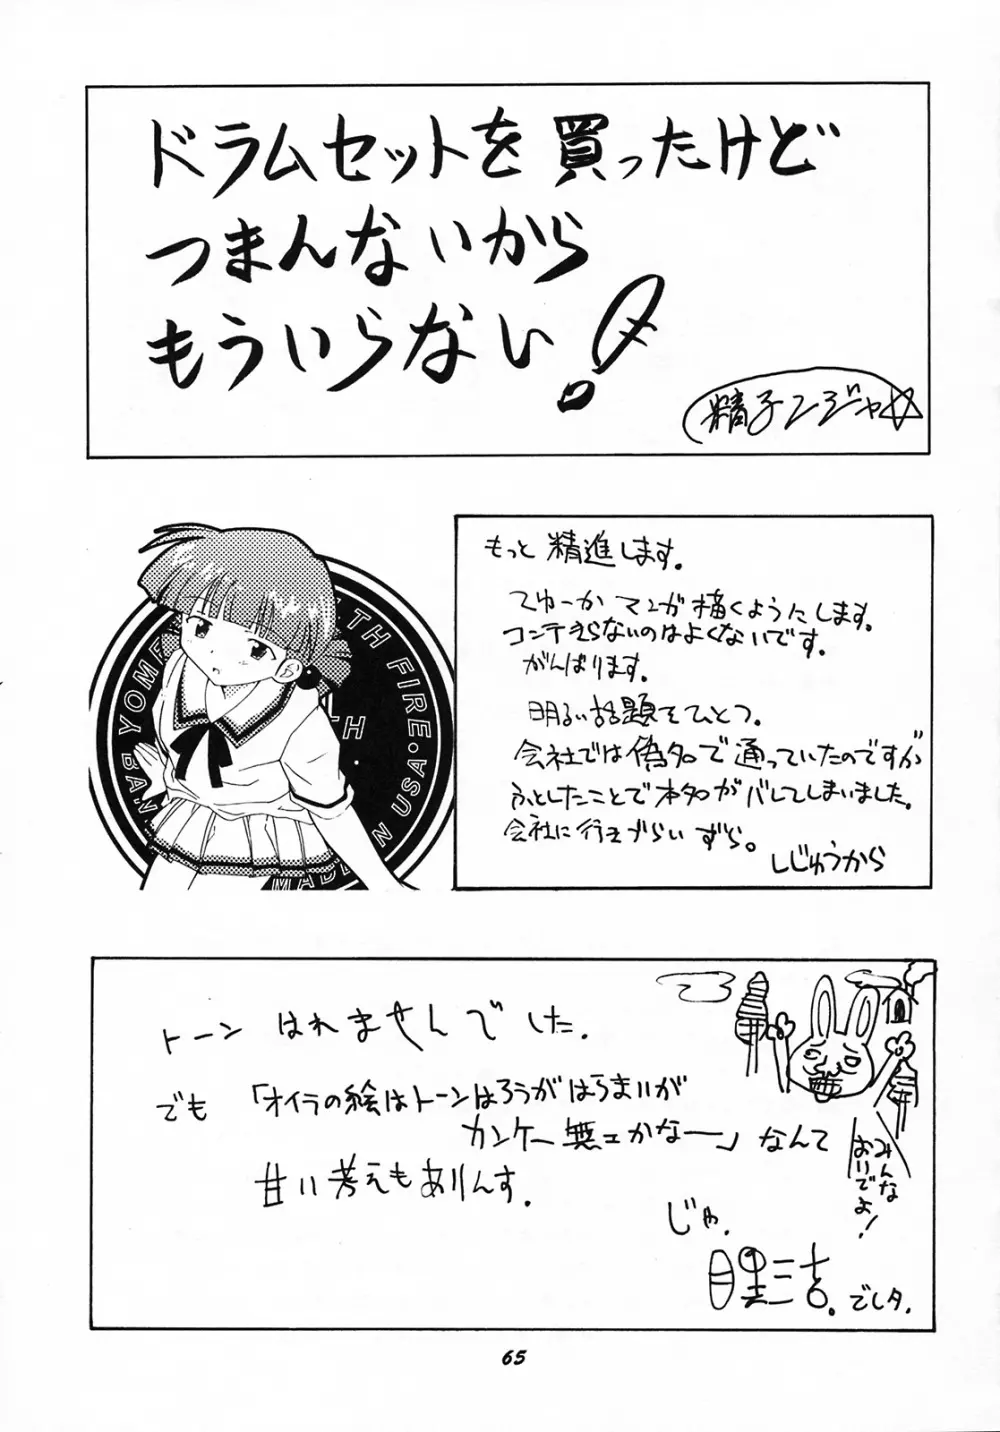 ドラムセットを買ったけど
つまんないから
もういらない!
精子ンジャ☆
もっと精進します。
てゆーかマンガ描くようにします。
コンテきらないのはよくないです。
がんばります。
明るい話題をひとつ。
会社では偽名で通っていたのですが
ふとしたことで本名がバレてしまいました。
会社に行きづらいずら。
しじゅうから
TH FIRE・
USA・
MADE
BAN
YOM
トーン はれませんでした.
でも 「オイラの絵はトーンはろうがはるまいが
カンケー無ェかなー」なんて
甘い考えもありんす.
みんな
おいでよ!
じゃ.
でしタ.
65